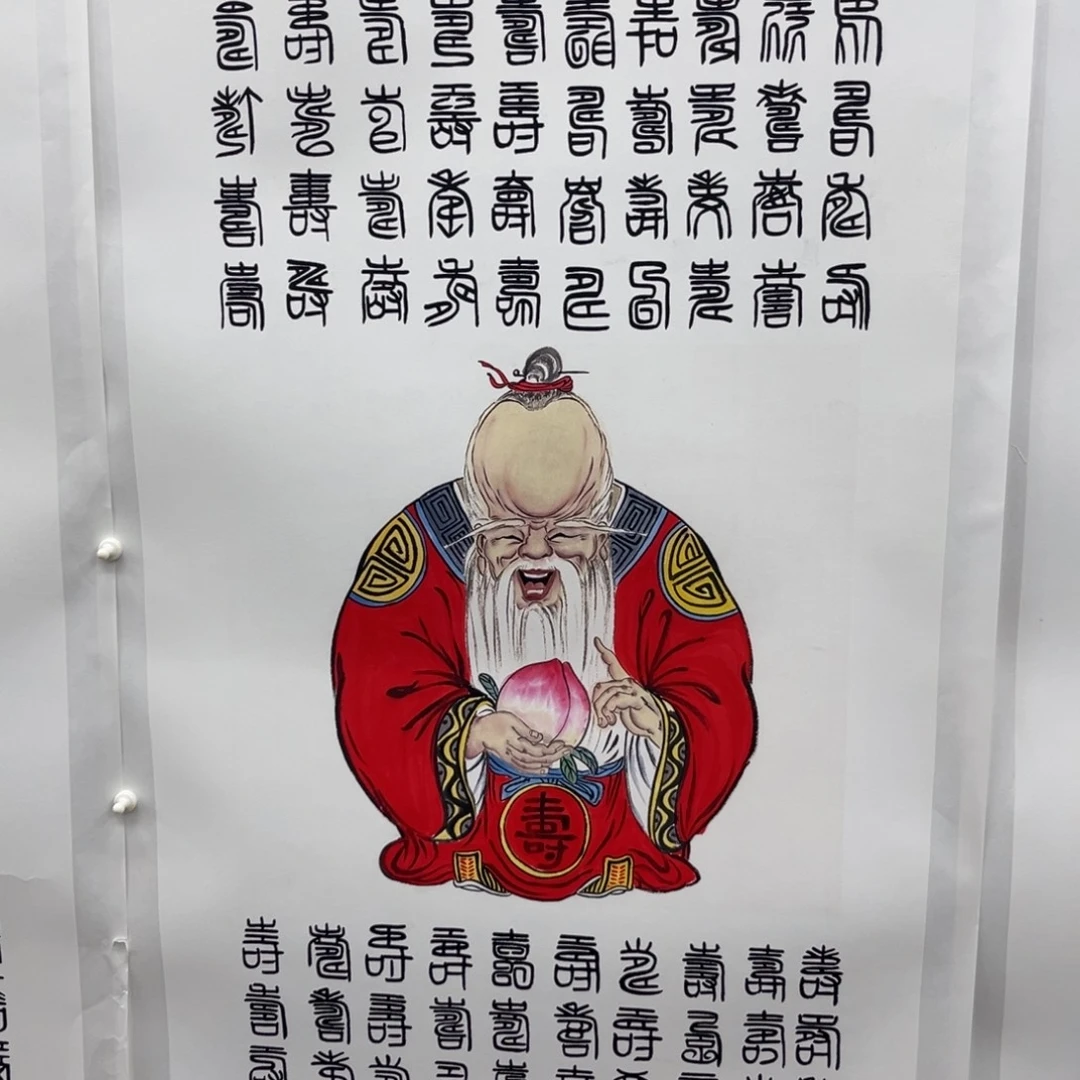 壽壽壽壽壽壽壽壽壽壽
壽壽壽壽壽壽壽壽壽壽
壽壽壽壽壽壽壽壽壽壽
壽壽壽壽壽壽壽壽壽壽
壽
壽壽壽壽壽壽壽壽壽壽
壽壽壽壽壽壽壽壽壽壽